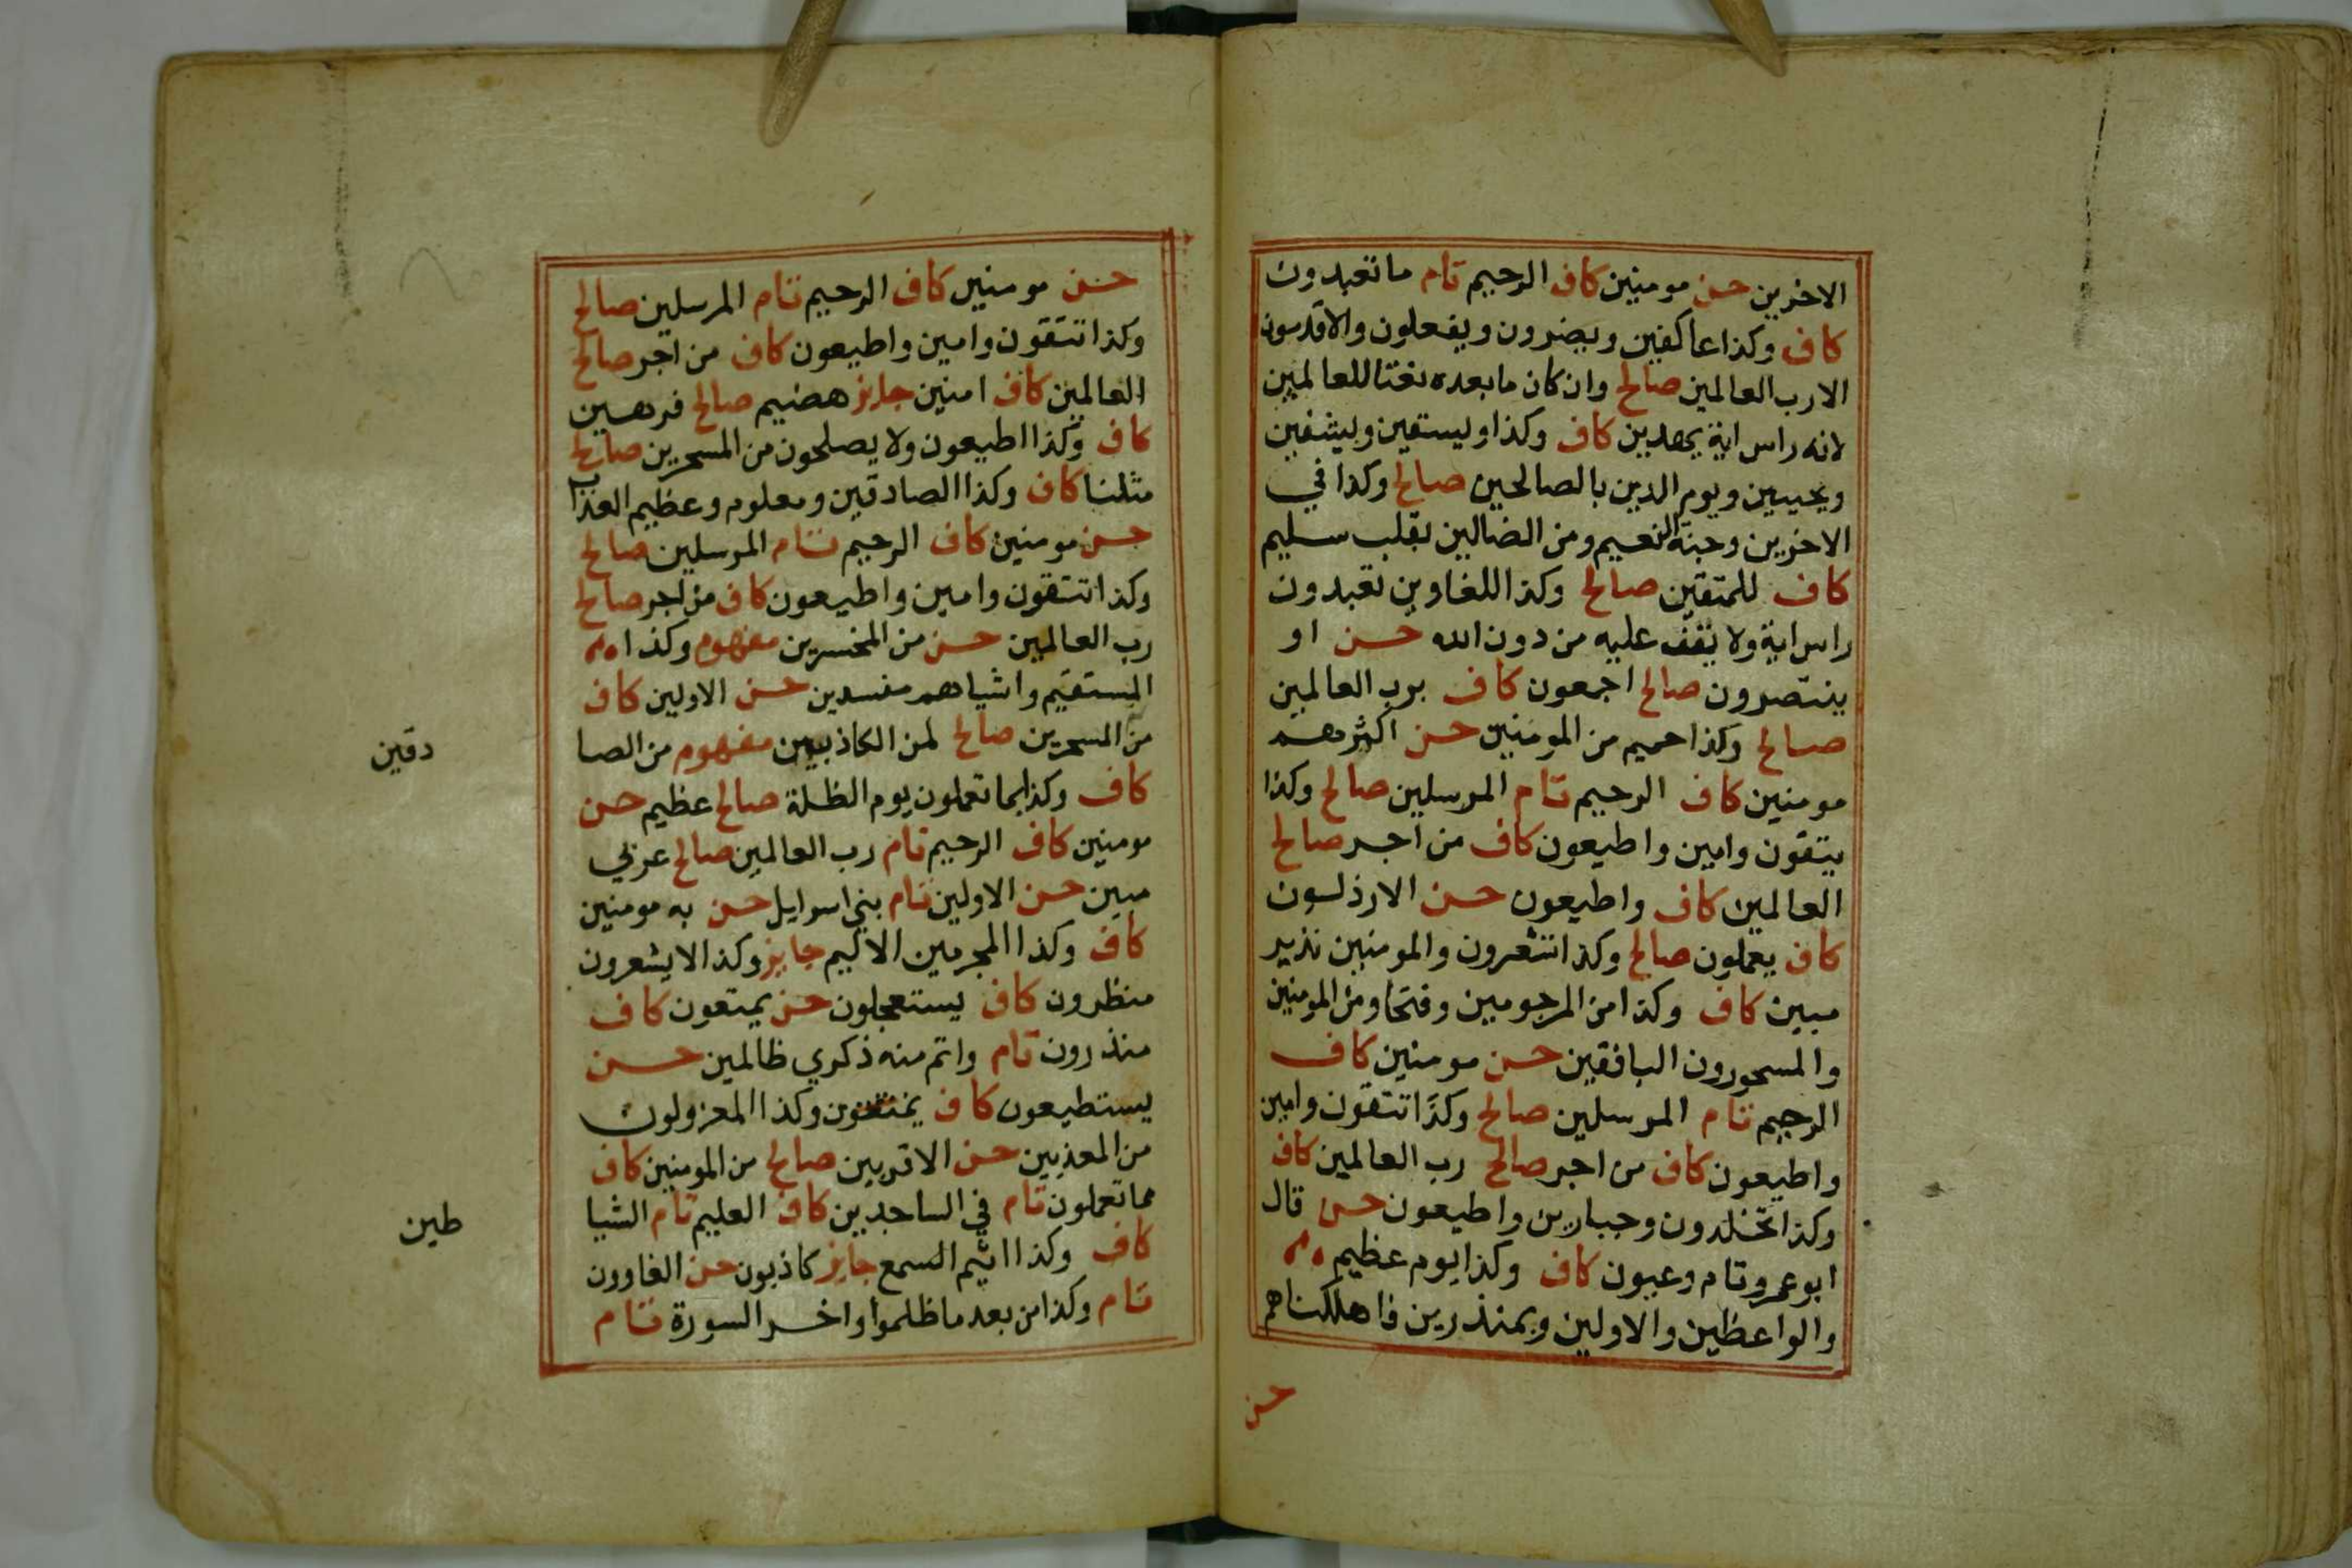 الاخرين حسن مومنين كاف الرحيم تام ما تعبدون
كاف وكذا عاكفين ويضرون ويفعلون والاقدمون
الا رب العالمين صالح وان كان ما بعده نعتا للعالمين
لانه راس اية يهدين كاف وكذا ويسقين ويشفين
ويحيين ويوم الدين بالصالحين صالح وكذا في
الاخرين وجنة النعيم ومن الضالين بقلب سليم
كاف للمتقين صالح وكذا للغاوين تعبدون
راس اية ولا يقف عليه من دون الله حسن او
ينتصرون صالح اجمعون كاف برب العالمين
صالح وكذا حميم من المومنين حسن اكثرهم
مومنين كاف الرحيم تام المرسلين صالح وكذا
تتقون وامين واطيعون كاف من اجر صالح
العالمين كاف واطيعون حسن الارذلون
كاف يعملون صالح وكذا تشعرون والمومنين نذير
مبين كاف وكذا من المرجومين وفتحا ومن المومنين
والمسحورون الباقين حسن مومنين كاف
الرحيم تام المرسلين صالح وكذا تتقون وامين
واطيعون كاف من اجر صالح رب العالمين كاف
وكذا تخلدون وجبارين واطيعون حسن قال
ابو عمرو تام وعيون كاف وكذا يوم عظيم
والواعظين والاولين وبمنذرين فاهلكناهم
حسن
حسن مومنين كاف الرحيم تام المرسلين صالح
وكذا تتقون وامين واطيعون كاف من اجر صالح
العالمين كاف امنين جايز هضيم صالح فرهين
كاف وكذا اطيعون ولا يصلحون من المسحرين صالح
مثلنا كاف وكذا الصادقين ومعلوم وعظيم العذاب
حسن مومنين كاف الرحيم تام المرسلين صالح
وكذا تتقون وامين واطيعون كاف من اجر صالح
رب العالمين حسن من المخسرين مفهوم وكذا
المستقيم واشياهم مفسدين حسن الاولين كاف
من المسحرين صالح لمن الكاذبين مفهوم من الصا
دقين
كاف وكذا بما تعملون يوم الظلة صالح عظيم حسن
مومنين كاف الرحيم تام رب العالمين صالح عربي
مبين حسن الاولين تام بني اسرايل حسن به مومنين
كاف وكذا المجرمين الاليم جايز وكذا لا يشعرون
منظرون كاف يستعجلون حسن يمتعون كاف
منذرون تام واتم منه ذكري ظالمين حسن
يستطيعون كاف وكذا المعزولون
من المعذبين حسن الاقربين صالح من المومنين كاف
مما تعملون تام في الساجدين كاف العليم تام الشيا
طين
كاف وكذا اثيم السمع جايز كاذبون حسن الغاوون
تام وكذا من بعد ما ظلموا واخر السورة تام